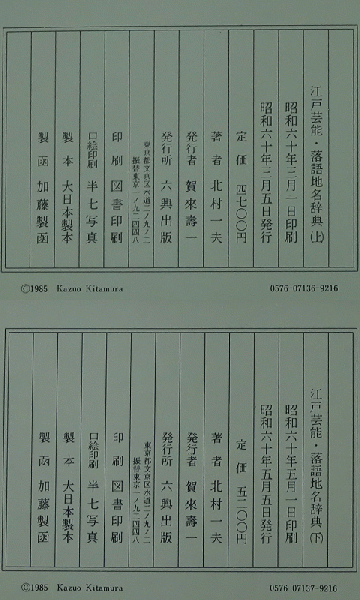 江戸芸能・落語地名辞典(上)
昭和六十年三月一日印刷
昭和六十年三月五日発行
定価 四七〇〇円
著者 北村一夫
発行者 賀來壽一
発行所 六興出版
東京都文京区水道二ノ九ノ二
振替東京一ノ九二四四八
印刷 図書印刷
口絵印刷 半七写真
製本 大日本製本
製函 加藤製函
©1985 Kazuo Kitamura
0576-07136-9216
江戸芸能・落語地名辞典(下)
昭和六十年五月一日印刷
昭和六十年五月五日発行
定価 五二〇〇円
著者 北村一夫
発行者 賀來壽一
発行所 六興出版
東京都文京区水道二ノ九ノ二
振替東京一ノ九二四四八
印刷 図書印刷
口絵印刷 半七写真
製本 大日本製本
製函 加藤製函
©1985 Kazuo Kitamura
0576-07137-9216